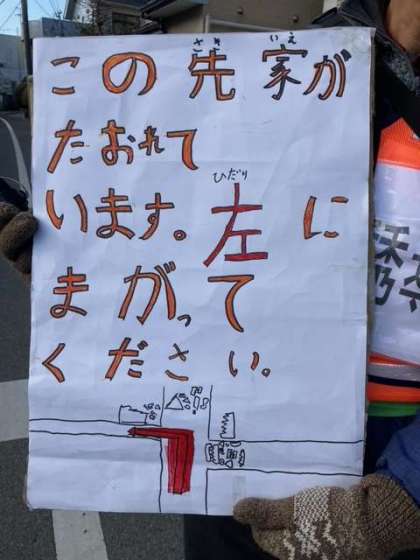 この先家が
さき いえ
たおれて
ひだり
います。左に
まがって
ください。